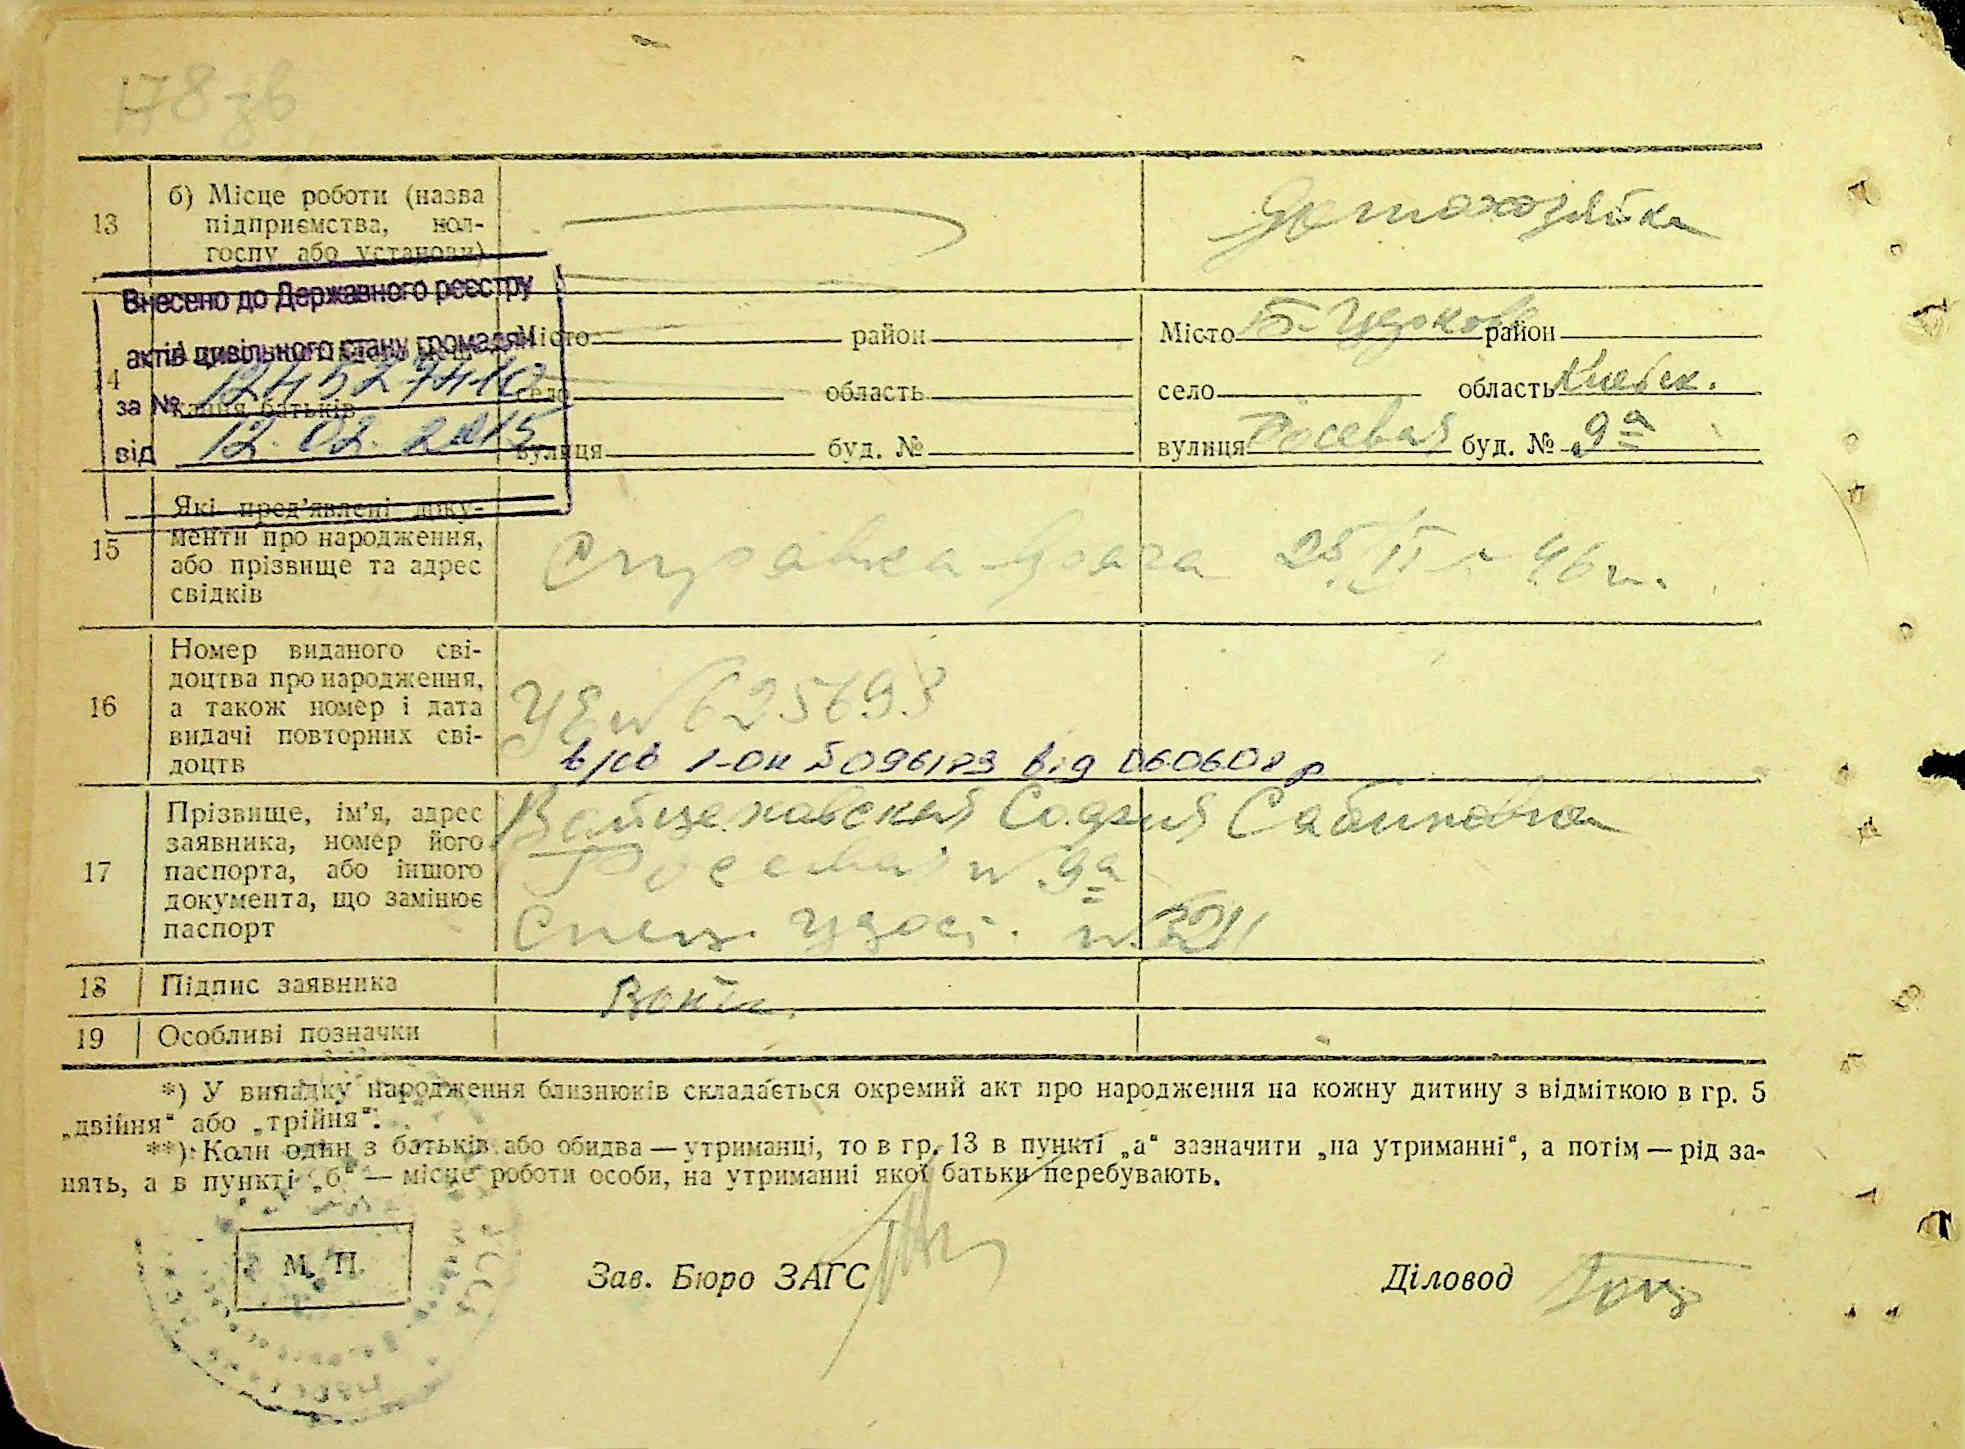 178 зв
13
б) Місце роботи (назва
підприємства, кол-
госпу або установи)
Домохозяйка
Внесено до Державного реєстру
актів цивільного стану громадян
за №
від 12.02.2015
14
кання батьків
Місто район
село область
вулиця буд. №
Місто Б-Церковь район
село область Киевск.
вулиця Росевая буд. № 9а
15
Які пред'явлені доку-
менти про народження,
або прізвище та адрес
свідків
Справка врача 25 II 46 г.
16
Номер виданого сві-
доцтва про народження,
а також номер і дата
видачі повторних сві-
доцтв
№ 625693
від 060608 р
17
Прізвище, ім'я, адрес
заявника, номер його
паспорта, або іншого
документа, що замінює
паспорт
Войцеховская София Сабиновна
Росевая № 9а
Спец. удост. №
18
Підпис заявника
19
Особливі позначки
*) У випадку народження близнюків складається окремий акт про народження на кожну дитину з відміткою в гр. 5
„двійня“ або „трійня“.
**) Коли один з батьків або обидва — утриманці, то в гр. 13 в пункті „а“ зазначити „на утриманні“, а потім — рід за-
нять, а в пункті „б“ — місце роботи особи, на утриманні якої батьки перебувають.
М. П.
Зав. Бюро ЗАГС
Діловод